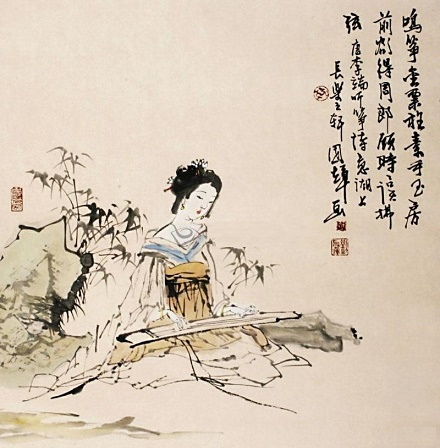 鳴箏金粟柱素手玉房
前欲得周郎顧時時誤拂
弦 唐李端听箏詩意湖上
長樂之軒